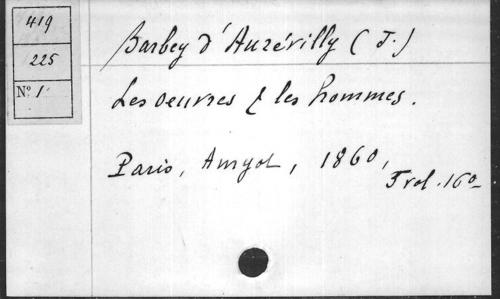 419
225
Nº 1
Barbey d'Aurévilly (J.)
Les oeuvres & les hommes.
Paris, Amyot, 1860,
3 vol. 16º